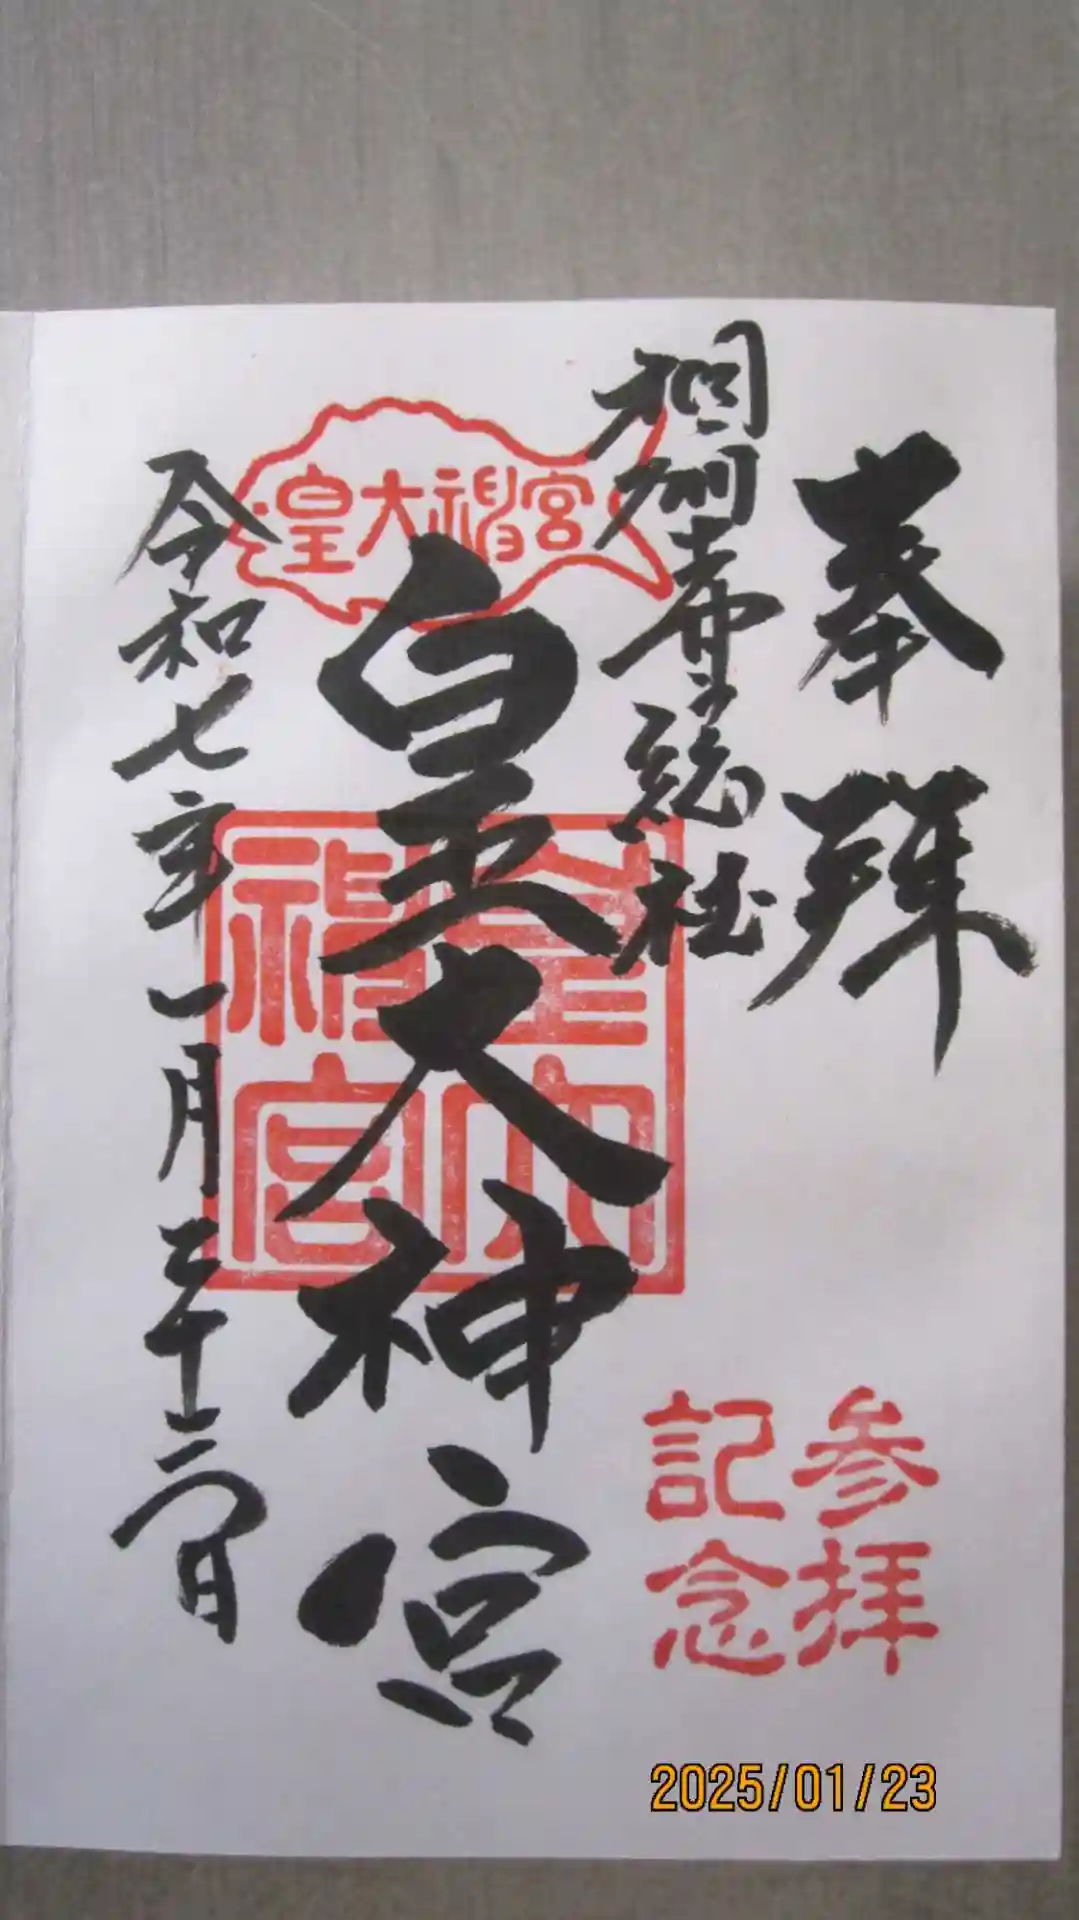 奉拝
総社
皇大神宮
皇大神宮
皇大
神宮
令和七年一月二十三日
参拝
記念
2025/01/23